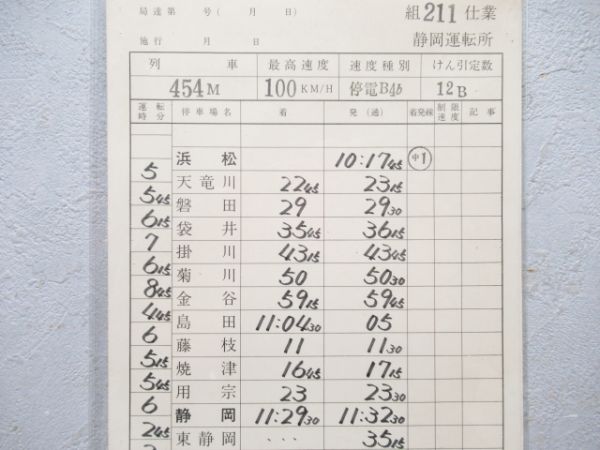 局達第 号( 月 日) 組211仕業
施行 月 日 静岡運転所
列 車 最高速度 速度種別 けん引定数
454M 100KM/H 停電B46 12B
運転時分 停車場名 着 発(通) 着発線 制限速度 記事
浜松 10:17 45 中1
5
天竜川 22 45 23 15
5 45
磐田 29 29 30
6 15
袋井 35 45 36 15
7
掛川 43 15 43 45
6 15
菊川 50 50 30
8 45
金谷 59 15 59 45
4 45
島田 11:04 30 05
6
藤枝 11 11 30
5 15
焼津 16 45 17 15
5 45
用宗 23 23 30
6
静岡 11:29 30 11:32 30
2 45
東静岡 ... 35 15